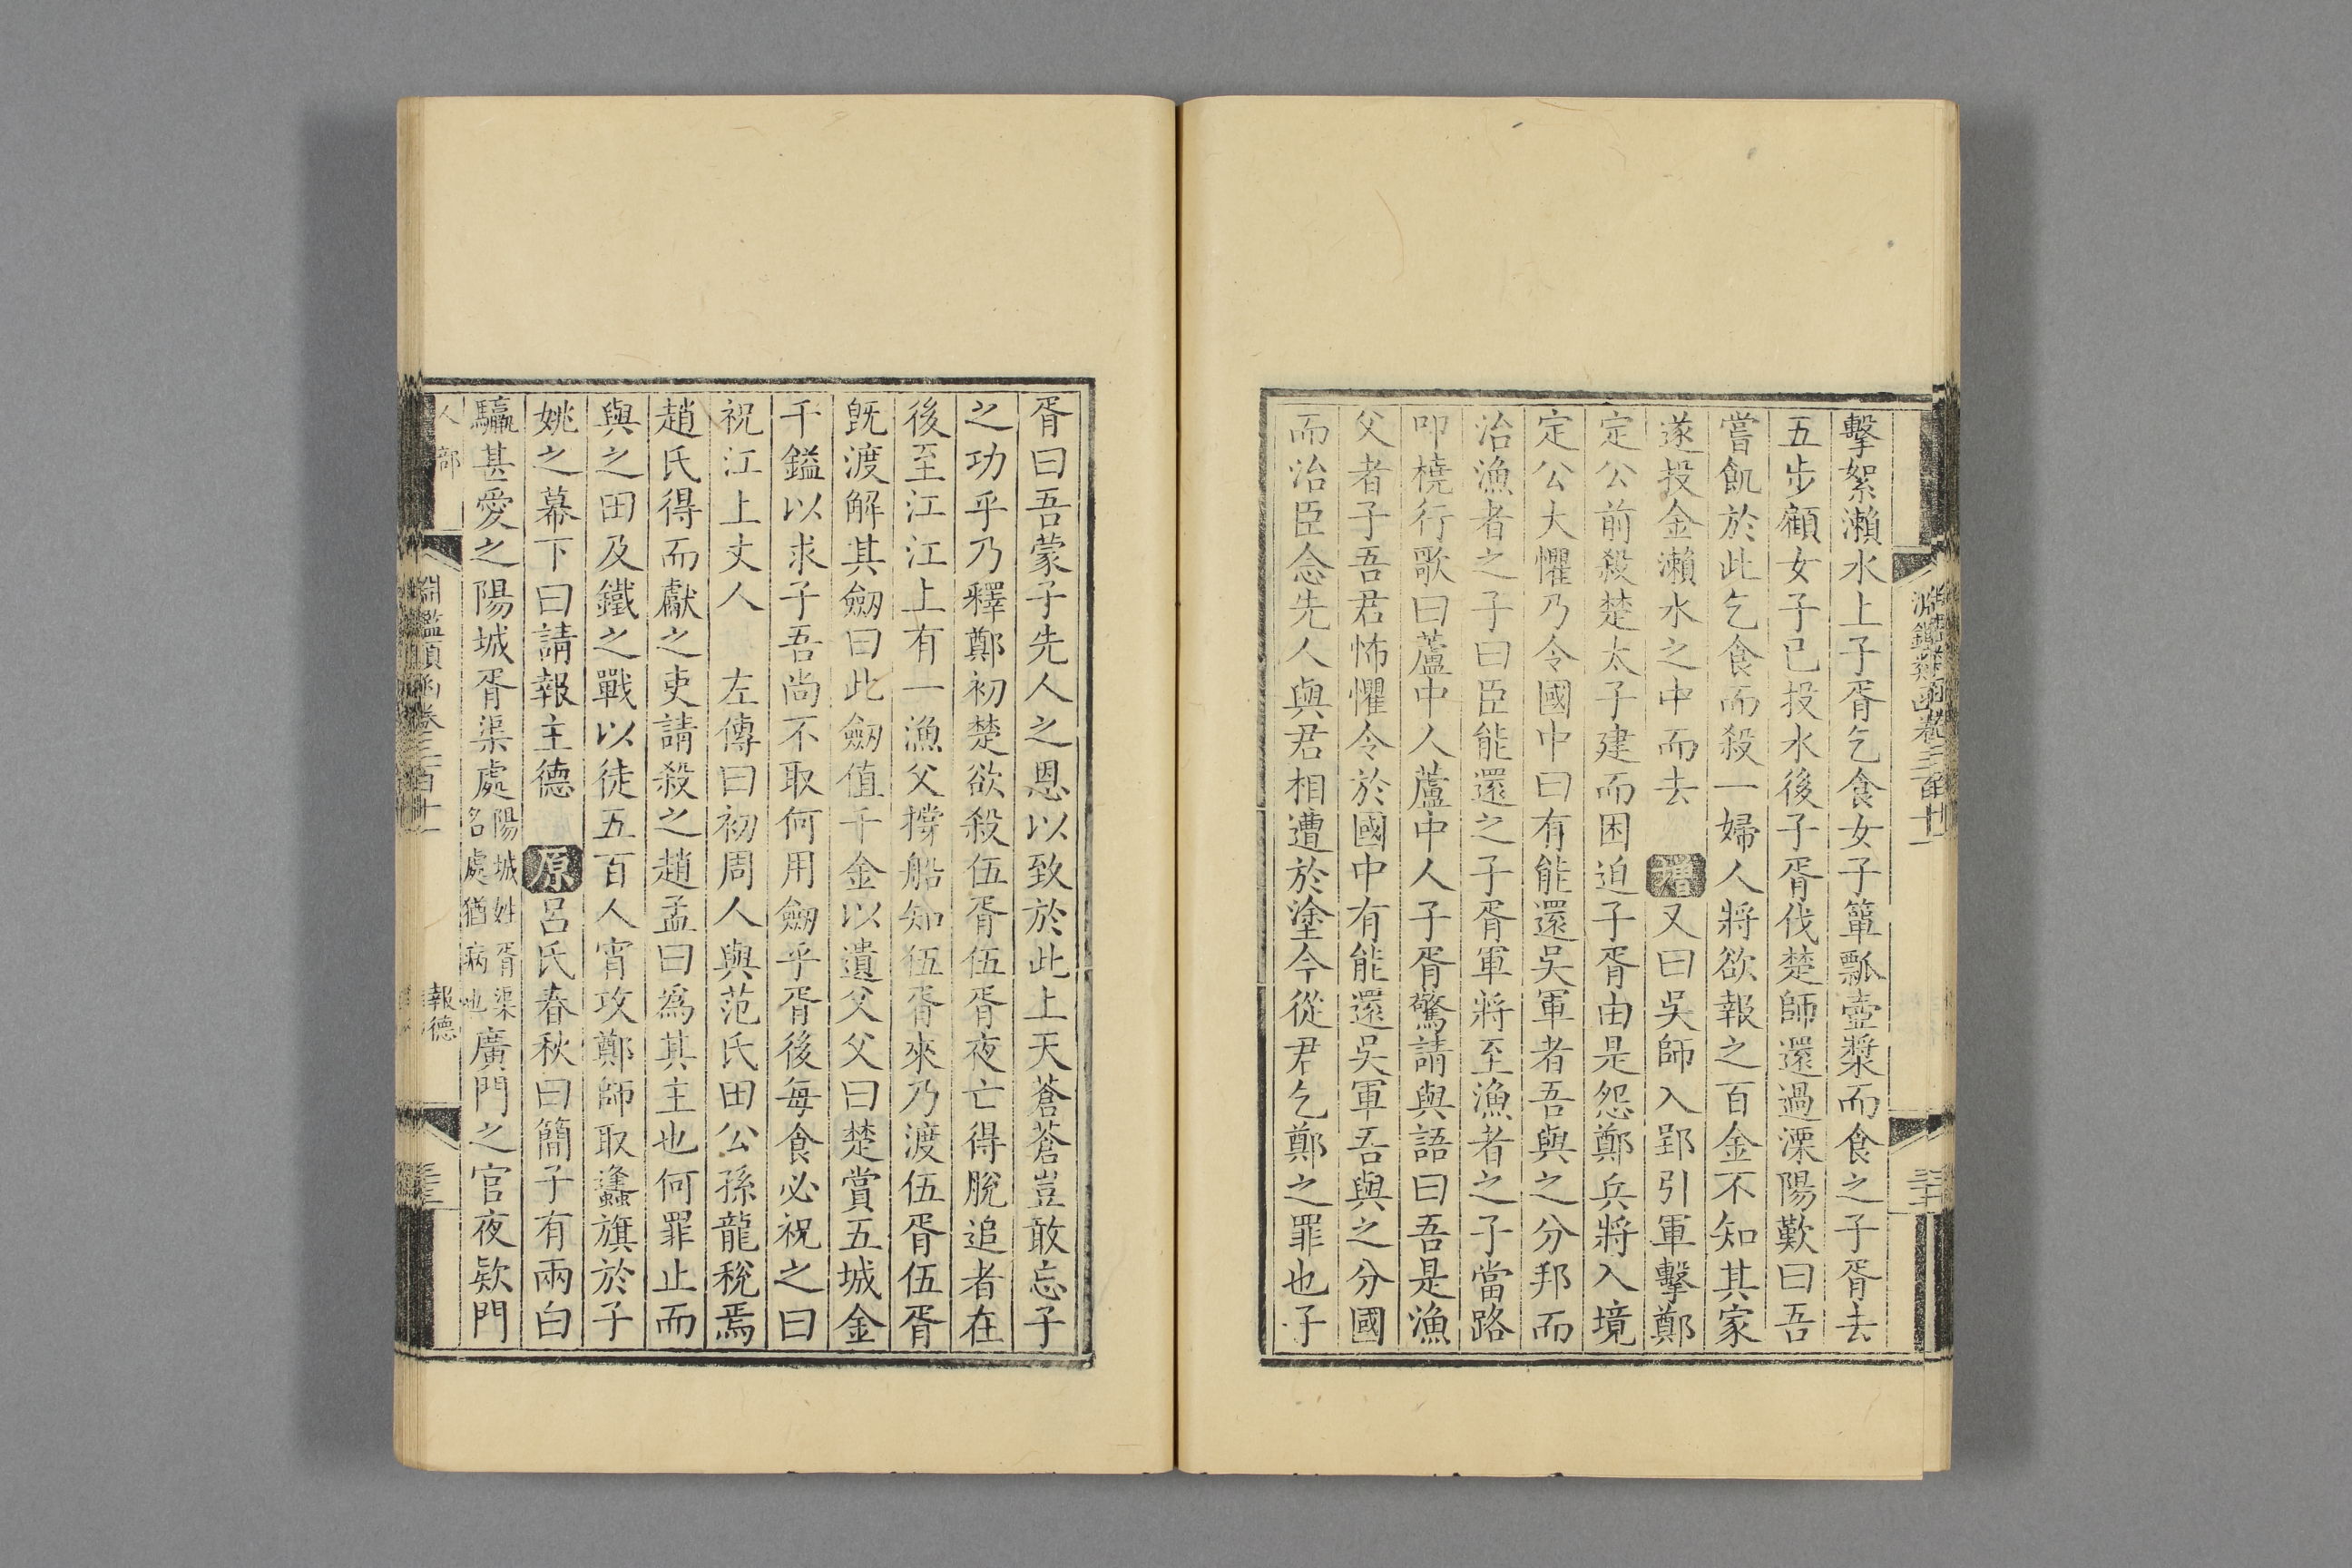 擊絮瀨水上子胥乞食女子簞瓢壺漿而食之子胥去
五步顧女子已投水後子胥伐楚師還過溧陽歎曰吾
嘗飢於此乞食而殺一婦人將欲報之百金不知其家
遂投金瀨水之中而去 增又曰吳師入郢引軍擊鄭
定公前殺楚太子建而困迫子胥由是怨鄭兵將入境
定公大懼乃令國中曰有能還吳軍者吾與之分邦而
治漁者之子曰臣能還之子胥軍將至漁者之子當路
叩橈行歌曰蘆中人蘆中人子胥驚請與語曰吾是漁
父者子吾君怖懼令於國中有能還吳軍吾與之分國
而治臣念先人與君相遭於塗今從君乞鄭之罪也子
胥曰吾蒙子先人之恩以致於此上天蒼蒼豈敢忘子
之功乎乃釋鄭初楚欲殺伍胥伍胥夜亡得脫追者在
後至江江上有一漁父撐船知伍胥來乃渡伍胥伍胥
既渡解其劒曰此劒值千金以遺父父曰楚賞五城金
千鎰以求子吾尚不取何用劒乎胥後每食必祝之曰
祝江上丈人 左傳曰初周人與范氏田公孫龍稅焉
趙氏得而獻之吏請殺之趙孟曰爲其主也何罪止而
與之田及鐵之戰以徒五百人宵攻鄭師取蠭旗於子
姚之幕下曰請報主德 原呂氏春秋曰簡子有兩白
驘甚愛之陽城胥渠處陽城姓胥渠
名處猶病也廣門之官夜欵門
人部
淵鑑類函卷三百十一
報德